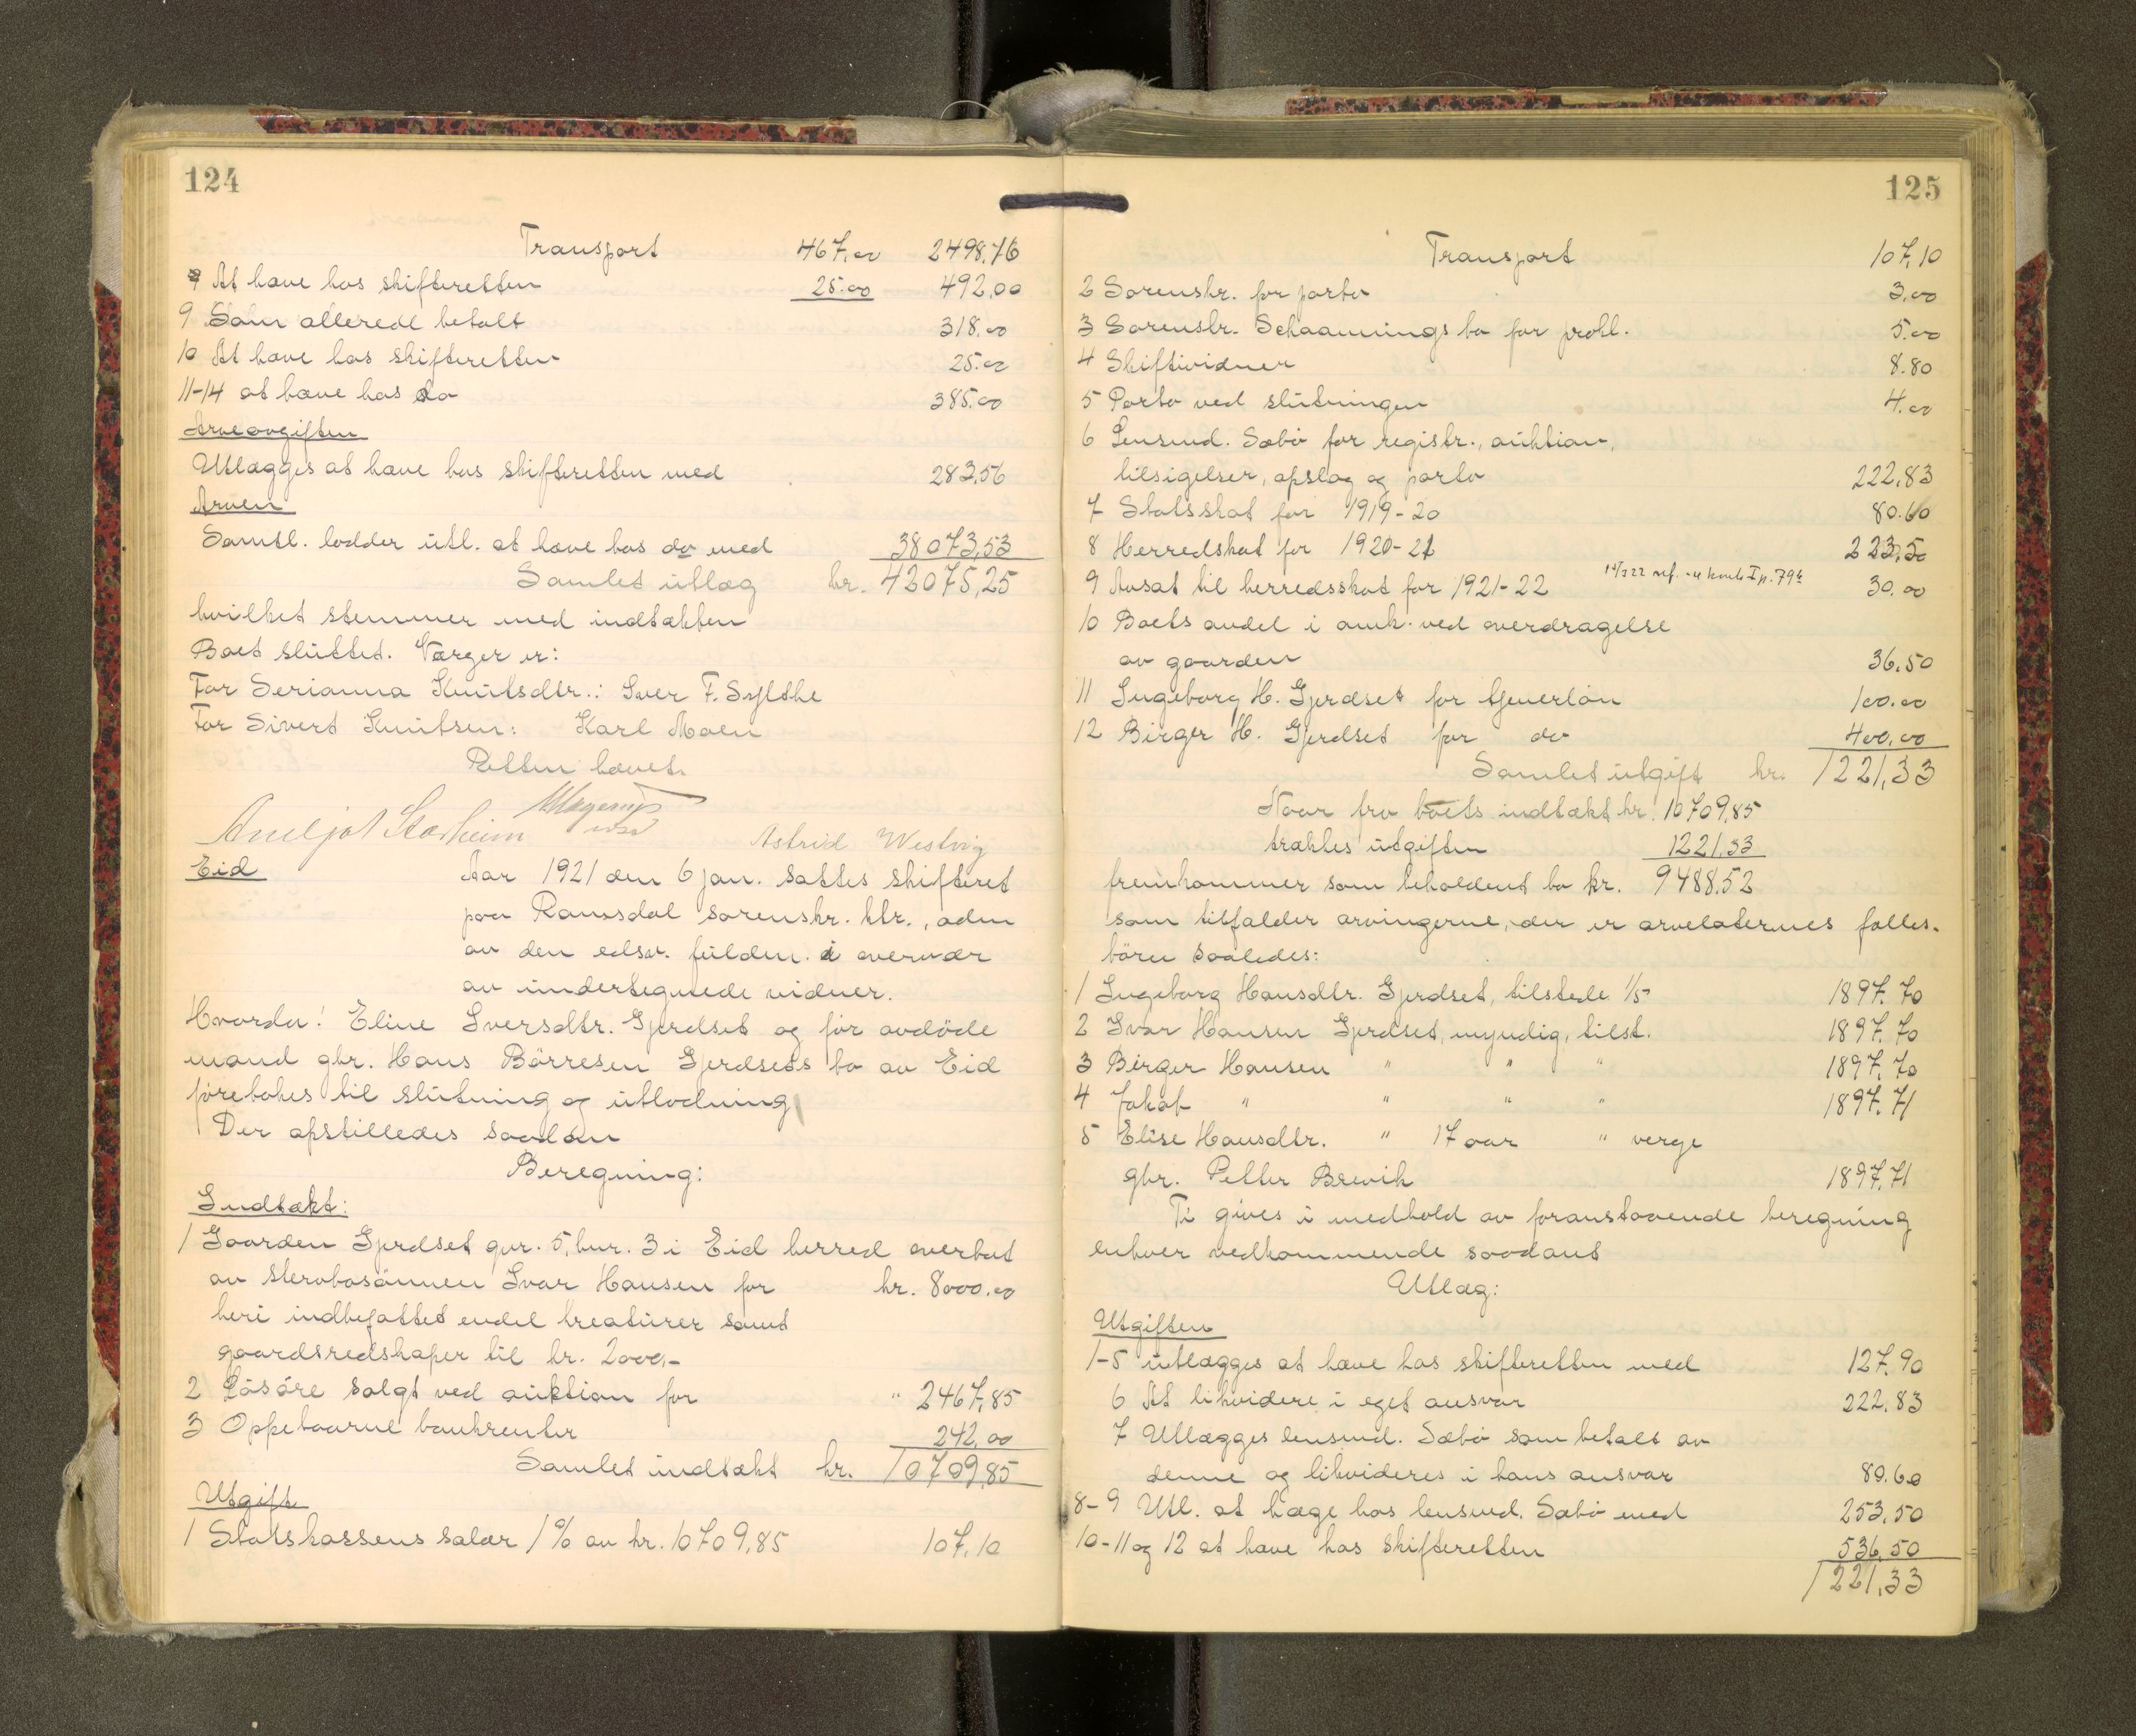 124
Transport 467.00 2498,76
9 At hæve hos skifteretten 25.00 492,00
9 Som allerede betalt 318.00
10 At hæve hos skifteretten 25.00
11-14 at hæve hos do 385.00
Arveavgiften
Utlægges at hæve hos skifteretten med 283,56
Arven
Samtl. lodder utl. at hæve hos do med 38073,53
Samlet utlæg kr. 42075,25
hvilket stemmer med indtækten
Boet sluttet. Værger er:
For Serianna Knutsdtr.: Iver F. Sylthe
For Sivert Knutsen: Karl Moen
Retten hævet.
Arneljot Starheim Astrid Westvig
Eid Aar 1921 den 6 jan. sattes skifteret
paa Romsdal sorenskr. ktr., adm
av den edsv. fuldm. i overvær
av undertegnede vidner.
Hvorda: Eline Iversdtr. Gjerdset og før avdöde
mand gbr. Hans Börresen Gjerdsets bo av Eid
foretokes til slutning og utlodning
Der opstilledes saadan
Beregning:
Indtækt:
1 Gaarden Gjerdset gnr. 5, bnr. 3 i Eid herred overtat
av stervbosönnen Ivar Hansen for kr. 8000.00
heri indbefattet endel kreaturer samt
gaardsredskaper til kr. 2000,-
2 Lösöre solgt ved auktion for " 2467,85
3 Oppebaarne bankrenter 242,00
Samlet indtækt kr. 10709,85
Utgift
1 Statskassens salær 1% av kr. 10709,85 107,10
125
Transport 107,10
2 Sorenskr. for porto 3.00
3 Sorenskr. Schaannings bo for prokl. 5.00
4 Skiftividner 8.80
5 Porto ved slutningen 4.00
6 Lensmd. Sæbö for registr., auktion,
tilsigelser, opslag og porto 222,83
7 Statsskat for 1919-20 80.60
8 Herredskat for 1920-21 223,50
9 Ansat til herredsskat for 1921-22 30.00
10 Boets andel i omk. ved overdragelse
av gaarden 36.50
11 Ingeborg H. Gjerdset for tjenerlön 100.00
12 Birger H. Gjerdset for do 400.00
Samlet utgift kr. 1221,33
Naar fra boets indtækt kr. 10709,85
trækkes utgiften 1221.33
fremkommer som beholdent bo kr. 9488.52
som tilfalder arvingerne, der er arvelaternes fælles-
börn saaledes:
1 Ingeborg Hansdtr. Gjerdset, tilstede 1/5 1897.70
2 Ivar Hansen Gjerdset, myndig, tilst. 1897.70
3 Birger Hansen " " " 1897.70
4 Jakob " " " " 1897.71
5 Elise Hansdtr. " 17 aar " verge
gbr. Petter Brevik 1897.71
Ti gives i medhold av foranstaaende beregning
enhver vedkommende saadant
Utlæg:
Utgiften
1-5 utlægges at hæve hos skifteretten med 127.90
6 At likvidere i eget ansvar 222.83
7 Utlægges lensmd. Sæbö som betalt av
denne og likvideres i hans ansvar 80.60
8-9 Utl. at hæge hos lensmd. Sæbö med 253.50
10-11 og 12 at hæve hos skifteretten 536.50
1221,33